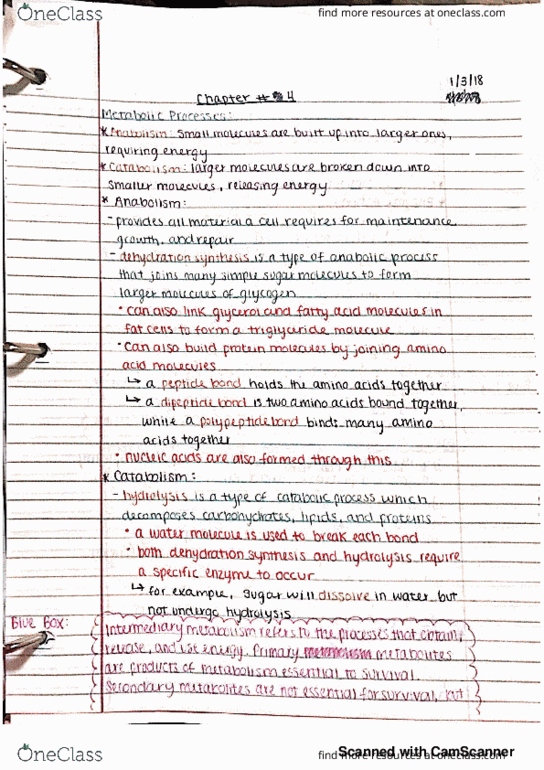 OneClass
find more resources at oneclass.com
1/3/18
Chapter # 4
Metabolic Processes:
* Anabolism: Small molecules are built up into larger ones,
requiring energy
* Catabolism: larger molecules are broken down into
smaller molecules, releasing energy
* Anabolism:
- provides all material a cell requires for maintenance
growth, and repair
- dehydration synthesis is a type of anabolic process
that joins many simple sugar molecules to form
larger molecules of glycogen
• can also link glycerol and fatty acid molecules in
fat cells to form a triglyceride molecule
• Can also build protein molecules by joining amino
acid molecules
↳ a peptide bond holds the amino acids together
↳ a dipeptide bond is two amino acids bound together,
while a polypeptide bond binds many amino
acids together
• nucleic acids are also formed through this
* Catabolism:
- hydrolysis is a type of catabolic process which
decomposes carbohydrates, lipids, and proteins
• a water molecule is used to break each bond
• both dehydration synthesis and hydrolysis require
a specific enzyme to occur
↳ for example, sugar will dissolve in water but
not undergo hydrolysis
Blue Box:
Intermediary metabolism refers to the processes that obtain,
release, and use energy. Primary metabolites
are products of metabolism essential to survival.
Secondary metabolites are not essential for survival, but
OneClass
find more resources at oneclass.com
Scanned with CamScanner